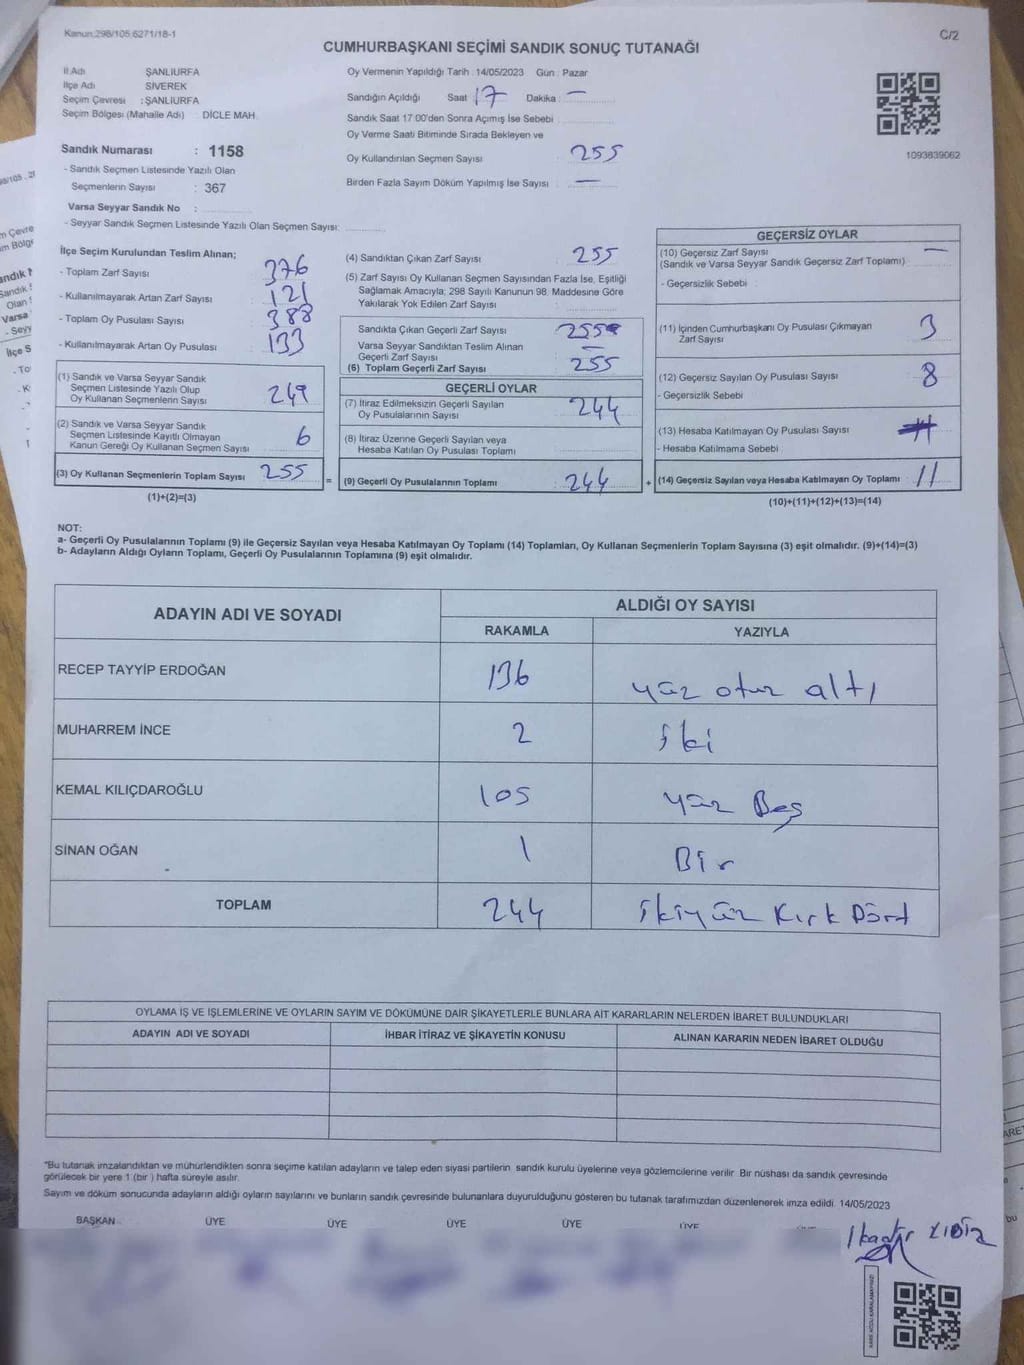 Kanun:298/105,6271/18-1
C/2
CUMHURBAŞKANI SEÇİMİ SANDIK SONUÇ TUTANAĞI
İl Adı ŞANLIURFA
İlçe Adı SİVEREK
Seçim Çevresi : ŞANLIURFA
Seçim Bölgesi (Mahalle Adı) : DİCLE MAH.
Oy Vermenin Yapıldığı Tarih : 14/05/2023 Gün : Pazar
Sandığın Açıldığı Saat 17 Dakika : —
Sandık Saat 17:00'den Sonra Açımış İse Sebebi :
Oy Verme Saati Bitiminde Sırada Bekleyen ve
Oy Kullandırılan Seçmen Sayısı : 255
Birden Fazla Sayım Döküm Yapılmış İse Sayısı : —
1093839062
Sandık Numarası : 1158
- Sandık Seçmen Listesinde Yazılı Olan
Seçmenlerin Sayısı : 367
Varsa Seyyar Sandık No :
- Seyyar Sandık Seçmen Listesinde Yazılı Olan Seçmen Sayısı:
İlçe Seçim Kurulundan Teslim Alınan;
- Toplam Zarf Sayısı : 376
- Kullanılmayarak Artan Zarf Sayısı : 121
- Toplam Oy Pusulası Sayısı : 388
- Kullanılmayarak Artan Oy Pusulası : 133
(1) Sandık ve Varsa Seyyar Sandık
Seçmen Listesinde Yazılı Olup
Oy Kullanan Seçmenlerin Sayısı : 249
(2) Sandık ve Varsa Seyyar Sandık
Seçmen Listesinde Kayıtlı Olmayan
Kanun Gereği Oy Kullanan Seçmen Sayısı : 6
(3) Oy Kullanan Seçmenlerin Toplam Sayısı : 255
(1)+(2)=(3)
(4) Sandıktan Çıkan Zarf Sayısı : 255
(5) Zarf Sayısı Oy Kullanan Seçmen Sayısından Fazla İse, Eşitliği
Sağlamak Amacıyla; 298 Sayılı Kanunun 98. Maddesine Göre
Yakılarak Yok Edilen Zarf Sayısı :
Sandıkta Çıkan Geçerli Zarf Sayısı 255
Varsa Seyyar Sandıktan Teslim Alınan
Geçerli Zarf Sayısı : —
(6) Toplam Geçerli Zarf Sayısı : 255
GEÇERLİ OYLAR
(7) İtiraz Edilmeksizin Geçerli Sayılan
Oy Pusulalarının Sayısı : 244
(8) İtiraz Üzerine Geçerli Sayılan veya
Hesaba Katılan Oy Pusulası Toplamı :
= (9) Geçerli Oy Pusulalarının Toplamı : 244
GEÇERSİZ OYLAR
(10) Geçersiz Zarf Sayısı : —
(Sandık ve Varsa Seyyar Sandık Geçersiz Zarf Toplamı)
- Geçersizlik Sebebi :
(11) İçinden Cumhurbaşkanı Oy Pusulası Çıkmayan
Zarf Sayısı : 3
(12) Geçersiz Sayılan Oy Pusulası Sayısı : 8
- Geçersizlik Sebebi
(13) Hesaba Katılmayan Oy Pusulası Sayısı :
- Hesaba Katılmama Sebebi :
+ (14) Geçersiz Sayılan veya Hesaba Katılmayan Oy Toplamı : 11
(10)+(11)+(12)+(13)=(14)
NOT:
a- Geçerli Oy Pusulalarının Toplamı (9) ile Geçersiz Sayılan veya Hesaba Katılmayan Oy Toplamı (14) Toplamları, Oy Kullanan Seçmenlerin Toplam Sayısına (3) eşit olmalıdır. (9)+(14)=(3)
b- Adayların Aldığı Oyların Toplamı, Geçerli Oy Pusulalarının Toplamına (9) eşit olmalıdır.
ADAYIN ADI VE SOYADI
ALDIĞI OY SAYISI
RAKAMLA YAZIYLA
RECEP TAYYİP ERDOĞAN 136 yüz otuz altı
MUHARREM İNCE 2 iki
KEMAL KILIÇDAROĞLU 105 yüz Beş
SİNAN OĞAN 1 Bir
TOPLAM 244 ikiyüz Kırk Dört
OYLAMA İŞ VE İŞLEMLERİNE VE OYLARIN SAYIM VE DÖKÜMÜNE DAİR ŞİKAYETLERLE BUNLARA AİT KARARLARIN NELERDEN İBARET BULUNDUKLARI
ADAYIN ADI VE SOYADI İHBAR İTİRAZ VE ŞİKAYETİN KONUSU ALINAN KARARIN NEDEN İBARET OLDUĞU
"Bu tutanak imzalandıktan ve mühürlendikten sonra seçime katılan adayların ve talep eden siyasi partilerin, sandık kurulu üyelerine veya gözlemcilerine verilir. Bir nüshası da sandık çevresinde
görülecek bir yere 1 (bir ) hafta süreyle asılır.
Sayım ve döküm sonucunda adayların aldığı oyların sayılarını ve bunların sandık çevresinde bulunanlara duyurulduğunu gösteren bu tutanak tarafımızdan düzenlenerek imza edildi. 14/05/2023
BAŞKAN ÜYE ÜYE ÜYE ÜYE ÜYE